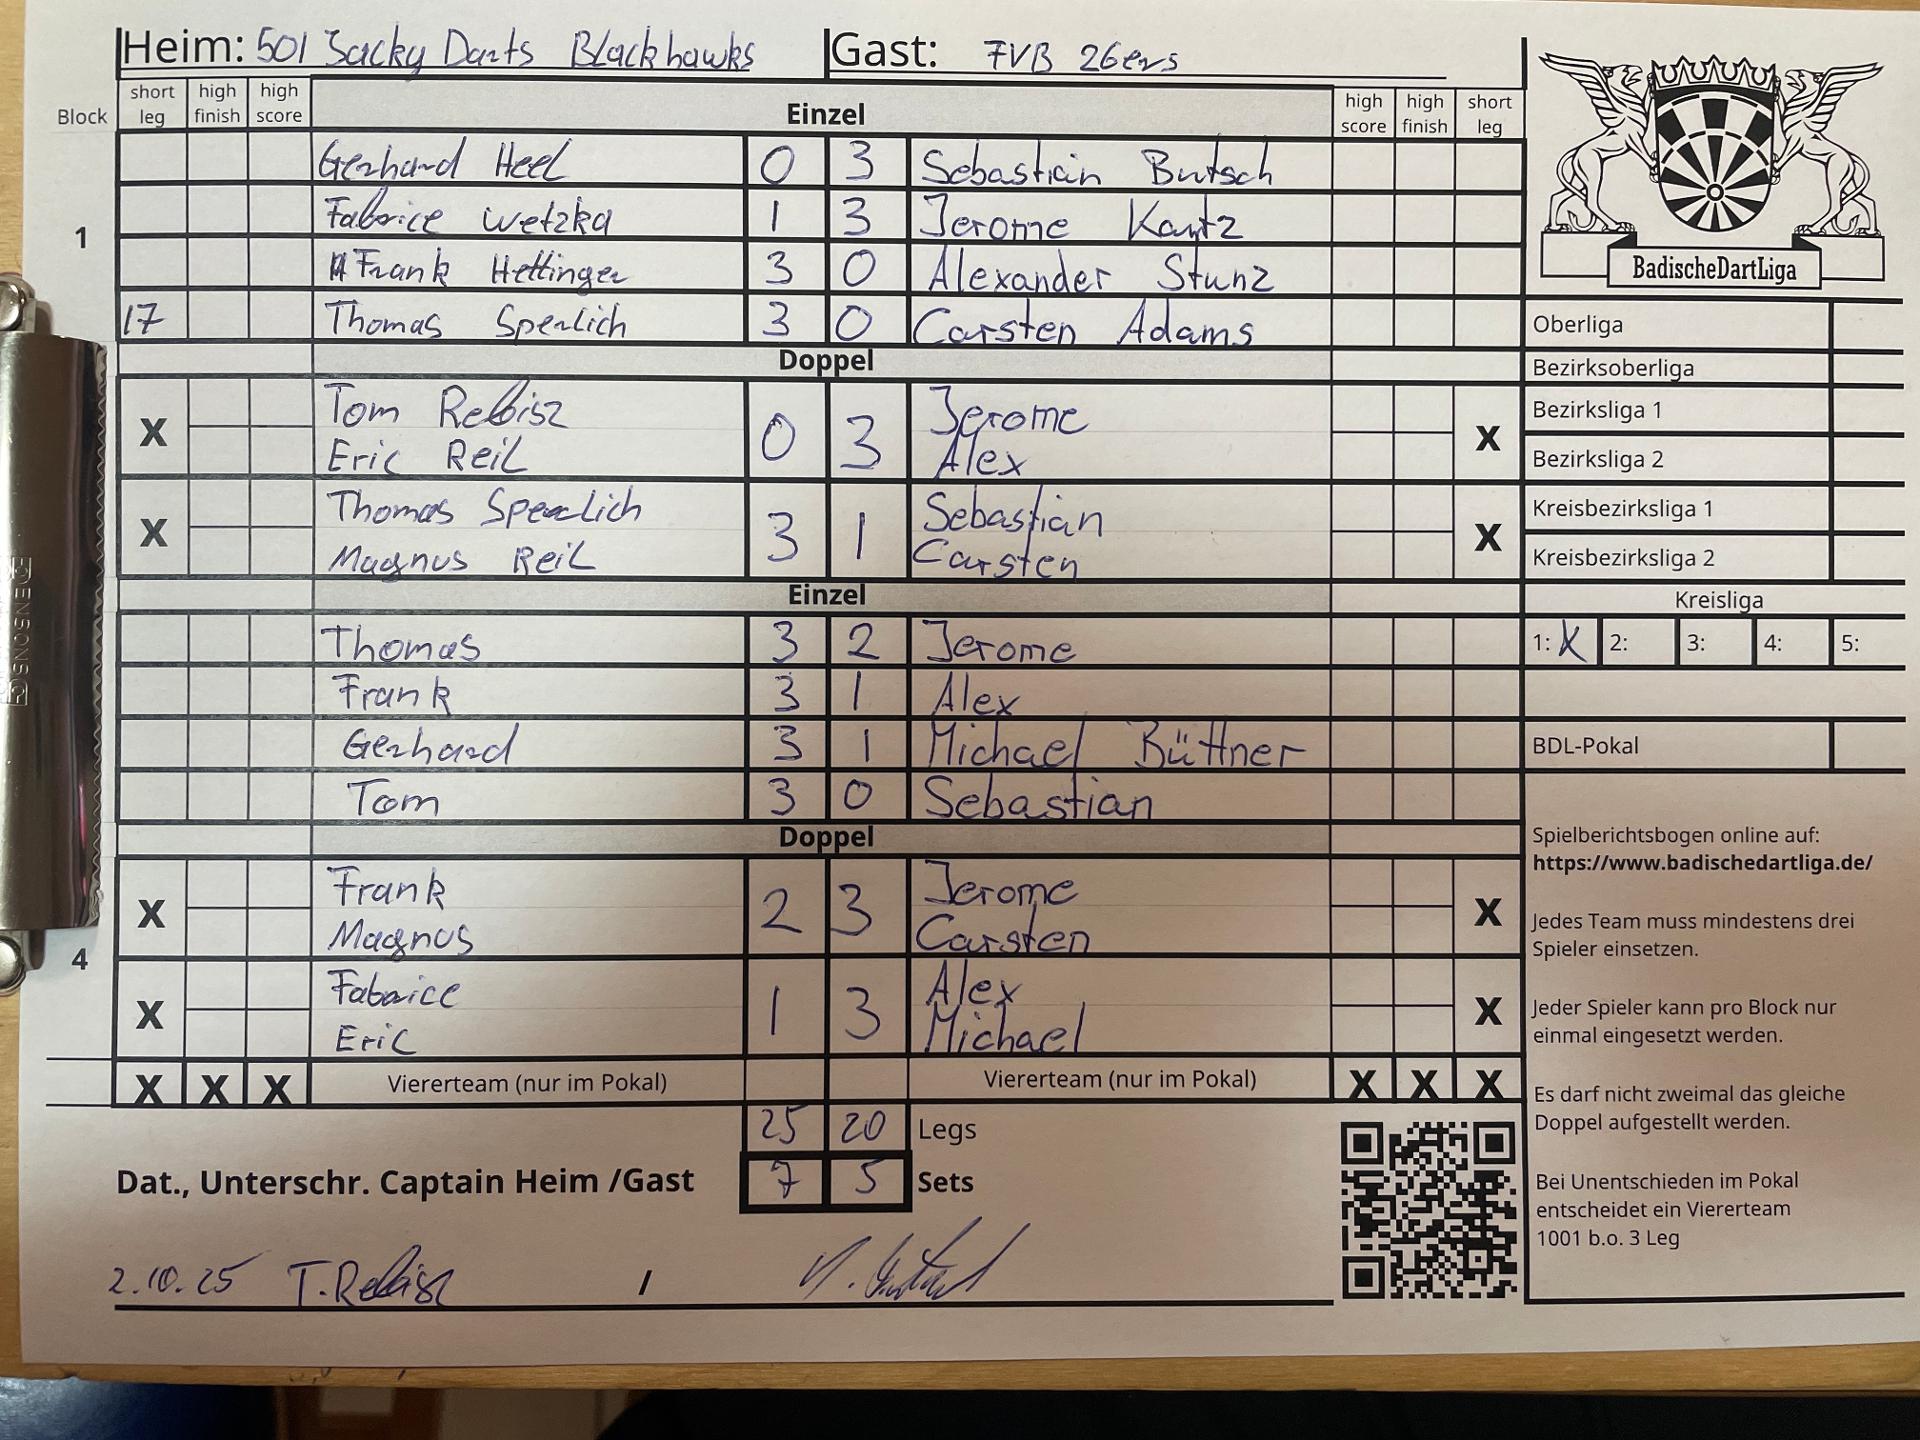 Heim: 501 Jacky Darts Blackhawks Gast: FVB 26ers
Block short leg high finish high score Einzel high score high finish short leg
Gerhard Heel 0 3 Sebastian Butsch
Fabrice Wetzka 1 3 Jerome Kantz
1
Frank Hettinger 3 0 Alexander Stunz
17 Thomas Sperlich 3 0 Carsten Adams
Doppel
X Tom Rebisz 0 3 Jerome X
Eric Reil Alex
X Thomas Sperlich 3 1 Sebastian X
Magnus Reil Carsten
Einzel
Thomas 3 2 Jerome
Frank 3 1 Alex
Gerhard 3 1 Michael Büttner
Tom 3 0 Sebastian
Doppel
X Frank 2 3 Jerome X
Magnus Carsten
4
X Fabrice 1 3 Alex X
Eric Michael
X X X Viererteam (nur im Pokal) Viererteam (nur im Pokal) X X X
25 20 Legs
Dat., Unterschr. Captain Heim /Gast 7 5 Sets
2.10.25 T.Rebisz /
BadischeDartLiga
Oberliga
Bezirksoberliga
Bezirksliga 1
Bezirksliga 2
Kreisbezirksliga 1
Kreisbezirksliga 2
Kreisliga
1: X 2: 3: 4: 5:
BDL-Pokal
Spielberichtsbogen online auf:
https://www.badischedartliga.de/
Jedes Team muss mindestens drei
Spieler einsetzen.
Jeder Spieler kann pro Block nur
einmal eingesetzt werden.
Es darf nicht zweimal das gleiche
Doppel aufgestellt werden.
Bei Unentschieden im Pokal
entscheidet ein Viererteam
1001 b.o. 3 Leg